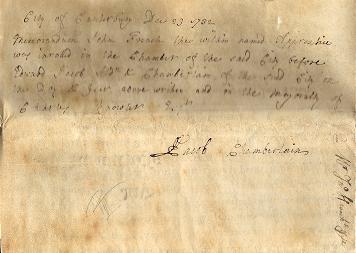 City of Canterbury Dec 23 1782
Memorandum John French the within named Apprentice
was inroled in the Chamber of the said City before
Edward Jacob Chamberlain of the said City on
the Day & Year above written and in the Mayoralty of
Charles
Jacob Chamberlain